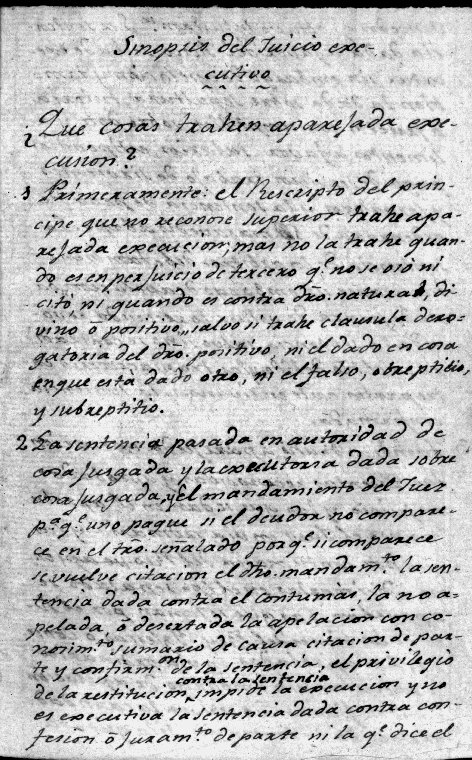 Sinopsis del Juicio exe-
cutivo
¿Que cosas trahen aparejada exe-
cusion?
1 Primeramente: el Rescripto del prin-
cipe que no reconose superior trahe apa-
rejada execucion; mas no la trahe quan-
do es en perjuicio de tercero qe. no se oió ni
citó, ni quando es contra dro. natural, di-
vino ó positivo,, salvo si trahe clausula dero-
gatoria del dro. positivo, ni el dado en cosa
en que està dado otro, ni el falso, obreptitio,
y subreptitio.
2 La sentencia pasada en autoridad de
cosa jusgada y la executoria dada sobre
cosa jusgada, y El mandamiento del Juez
pa. qe. uno pague si el deudor no compare-
ce en el tro. señalado porqe. si comparece
se vuelve citacion el dho. mandamto. la sen-
tencia dada contra el contumàs, la no a-
pelada, ó desertada la apelacion con co-
nosimto. sumario de causa citacion de par-
te y confirmon. de la sentencia, el privilegio
de la restitucion contra la sentencia impide la execucion y no
es executiva la sentencia dada contra con-
fesion ó juramto. de parte ni la qe. dice el